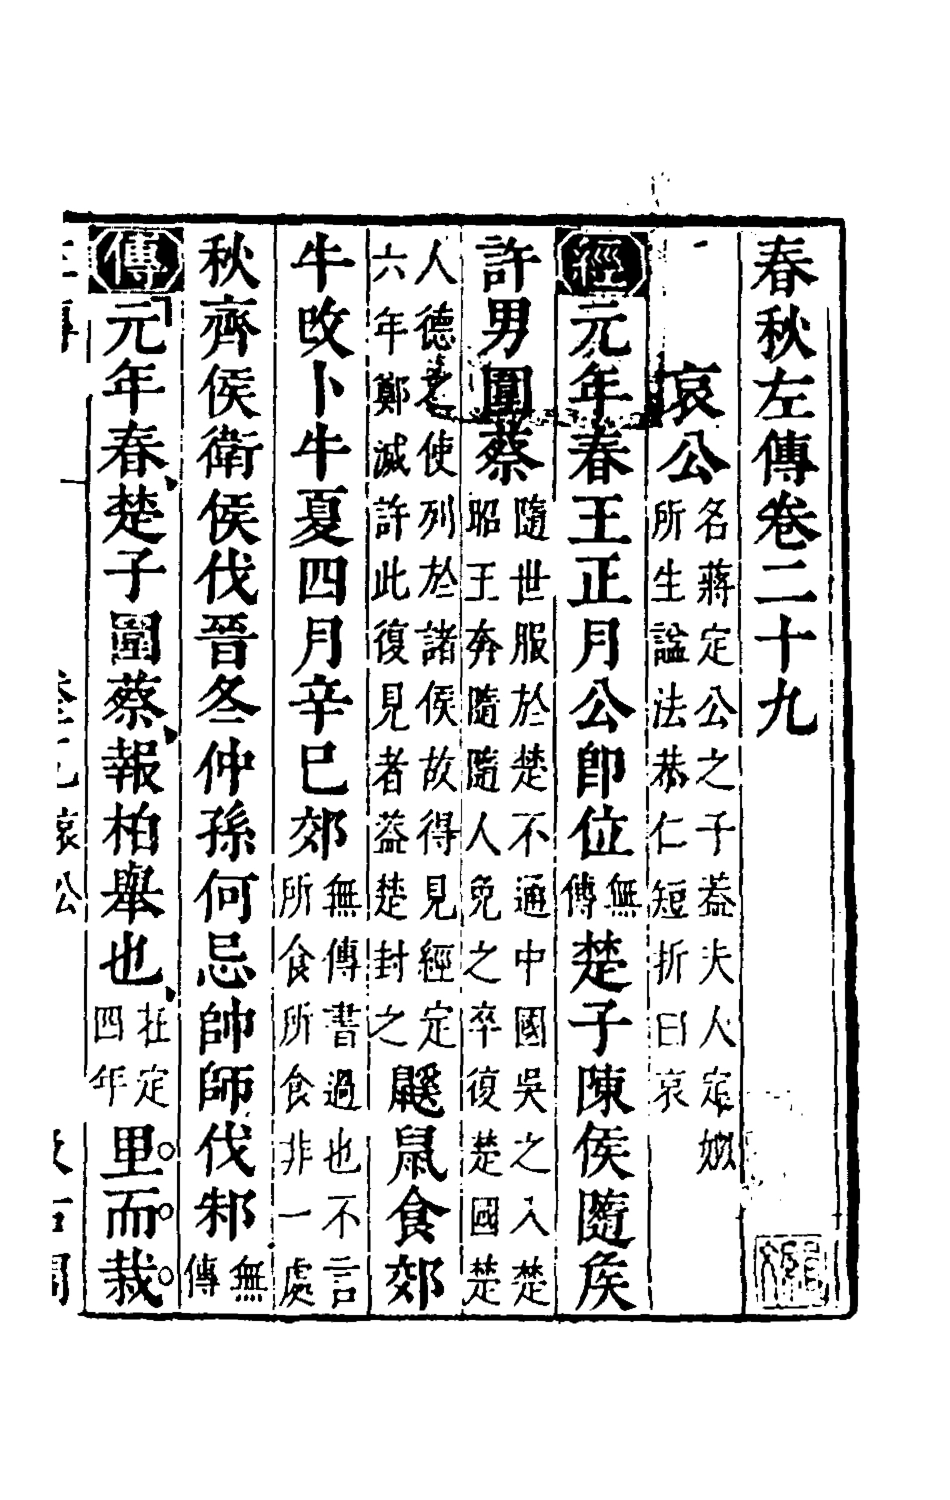 春秋左傳卷二十九
哀公名蔣定公之子葢夫人定姒所生諡法恭仁短折曰哀
經元年春王正月公卽位無傳楚子陳侯隨侯
許男圍蔡隨世服於楚不通中國吳之入楚昭王奔隨隨人免之卒復楚國楚
人德之使列於諸侯故得見經定六年鄭滅許此復見者葢楚封之鼷鼠食郊
牛改卜牛夏四月辛巳郊無傳書過也不言所食所食非一處
秋齊侯衛侯伐晉冬仲孫何忌帥師伐邾無傳
傳元年春楚子圍蔡報柏舉也在定四年里而栽